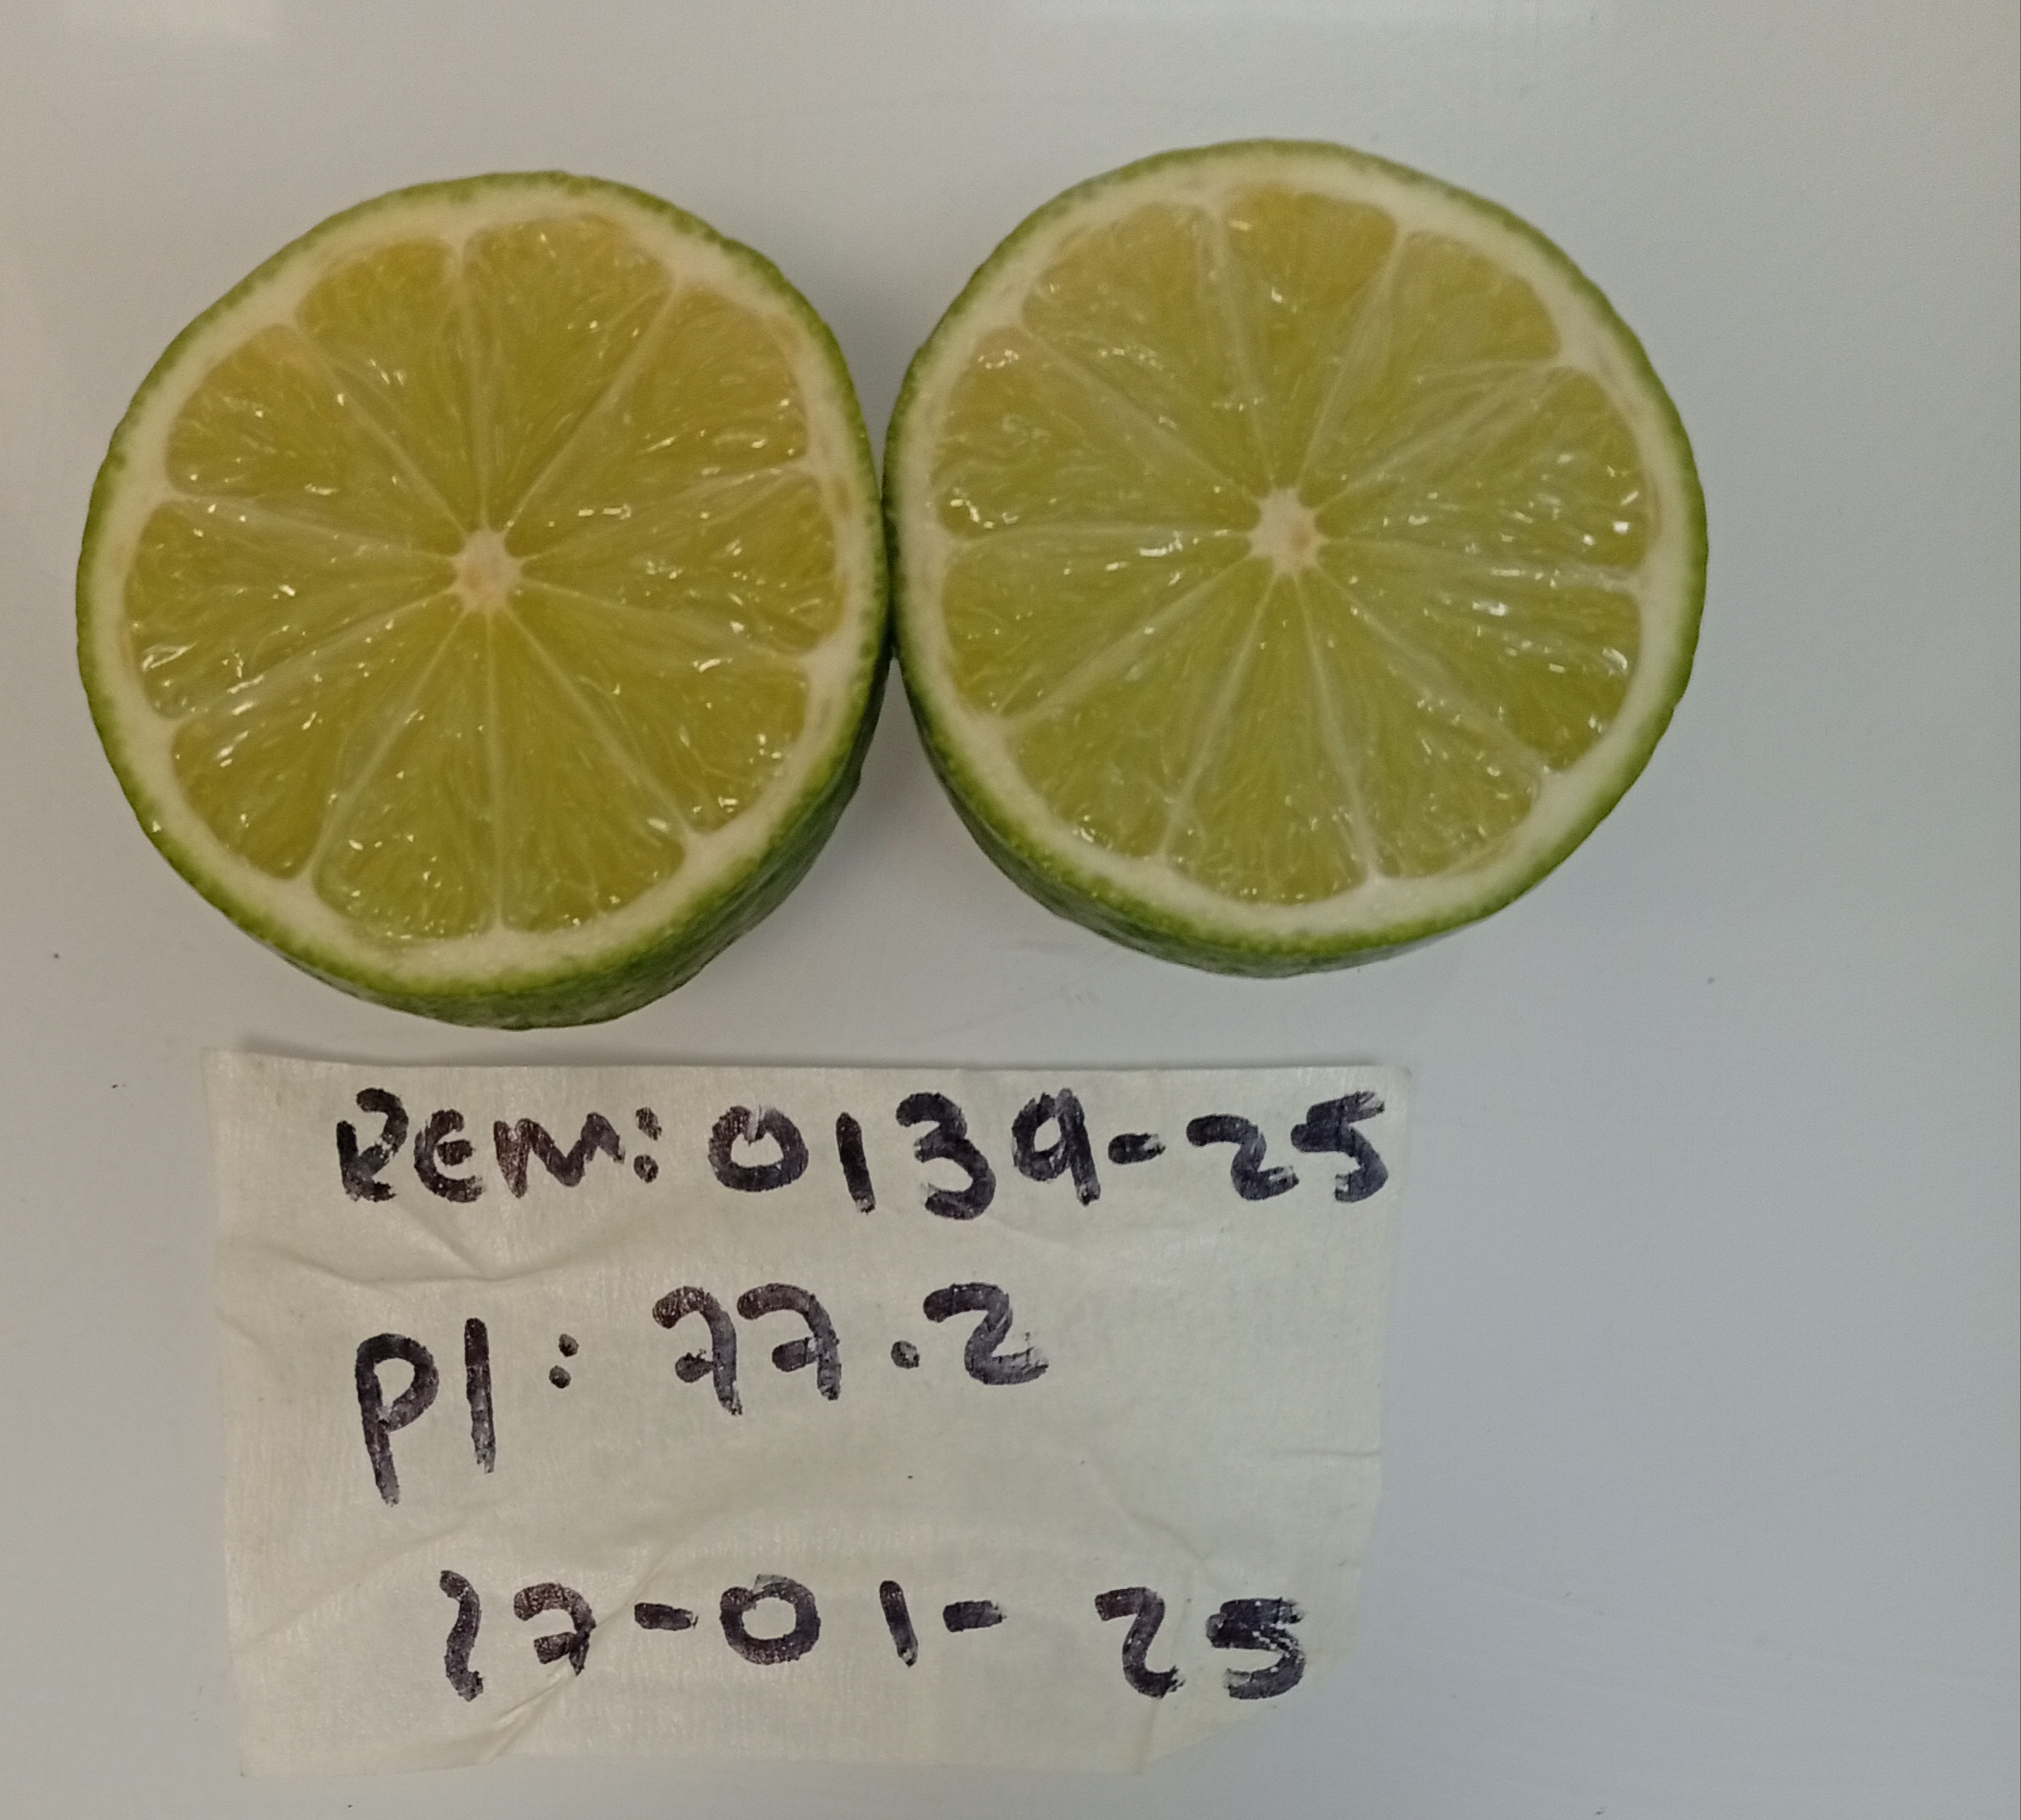 REM: 0139-25
PI: 77.2
27-01-25